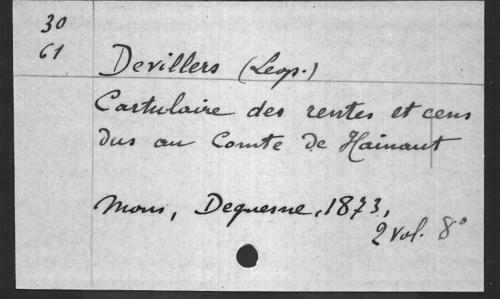 30
61
Devillers (Leop.)
Cartulaire des rentes et cens
dus au Comte de Hainaut
Mons, Dequesne, 1873,
2 vol. 8°